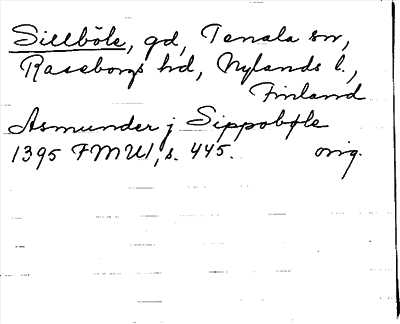 Sillböle, gd, Tenala sn,
Raseborgs hd, Nylands l.,
Finland
Asmunder j Sippobøle
1395 FMU 1, s. 445. orig.